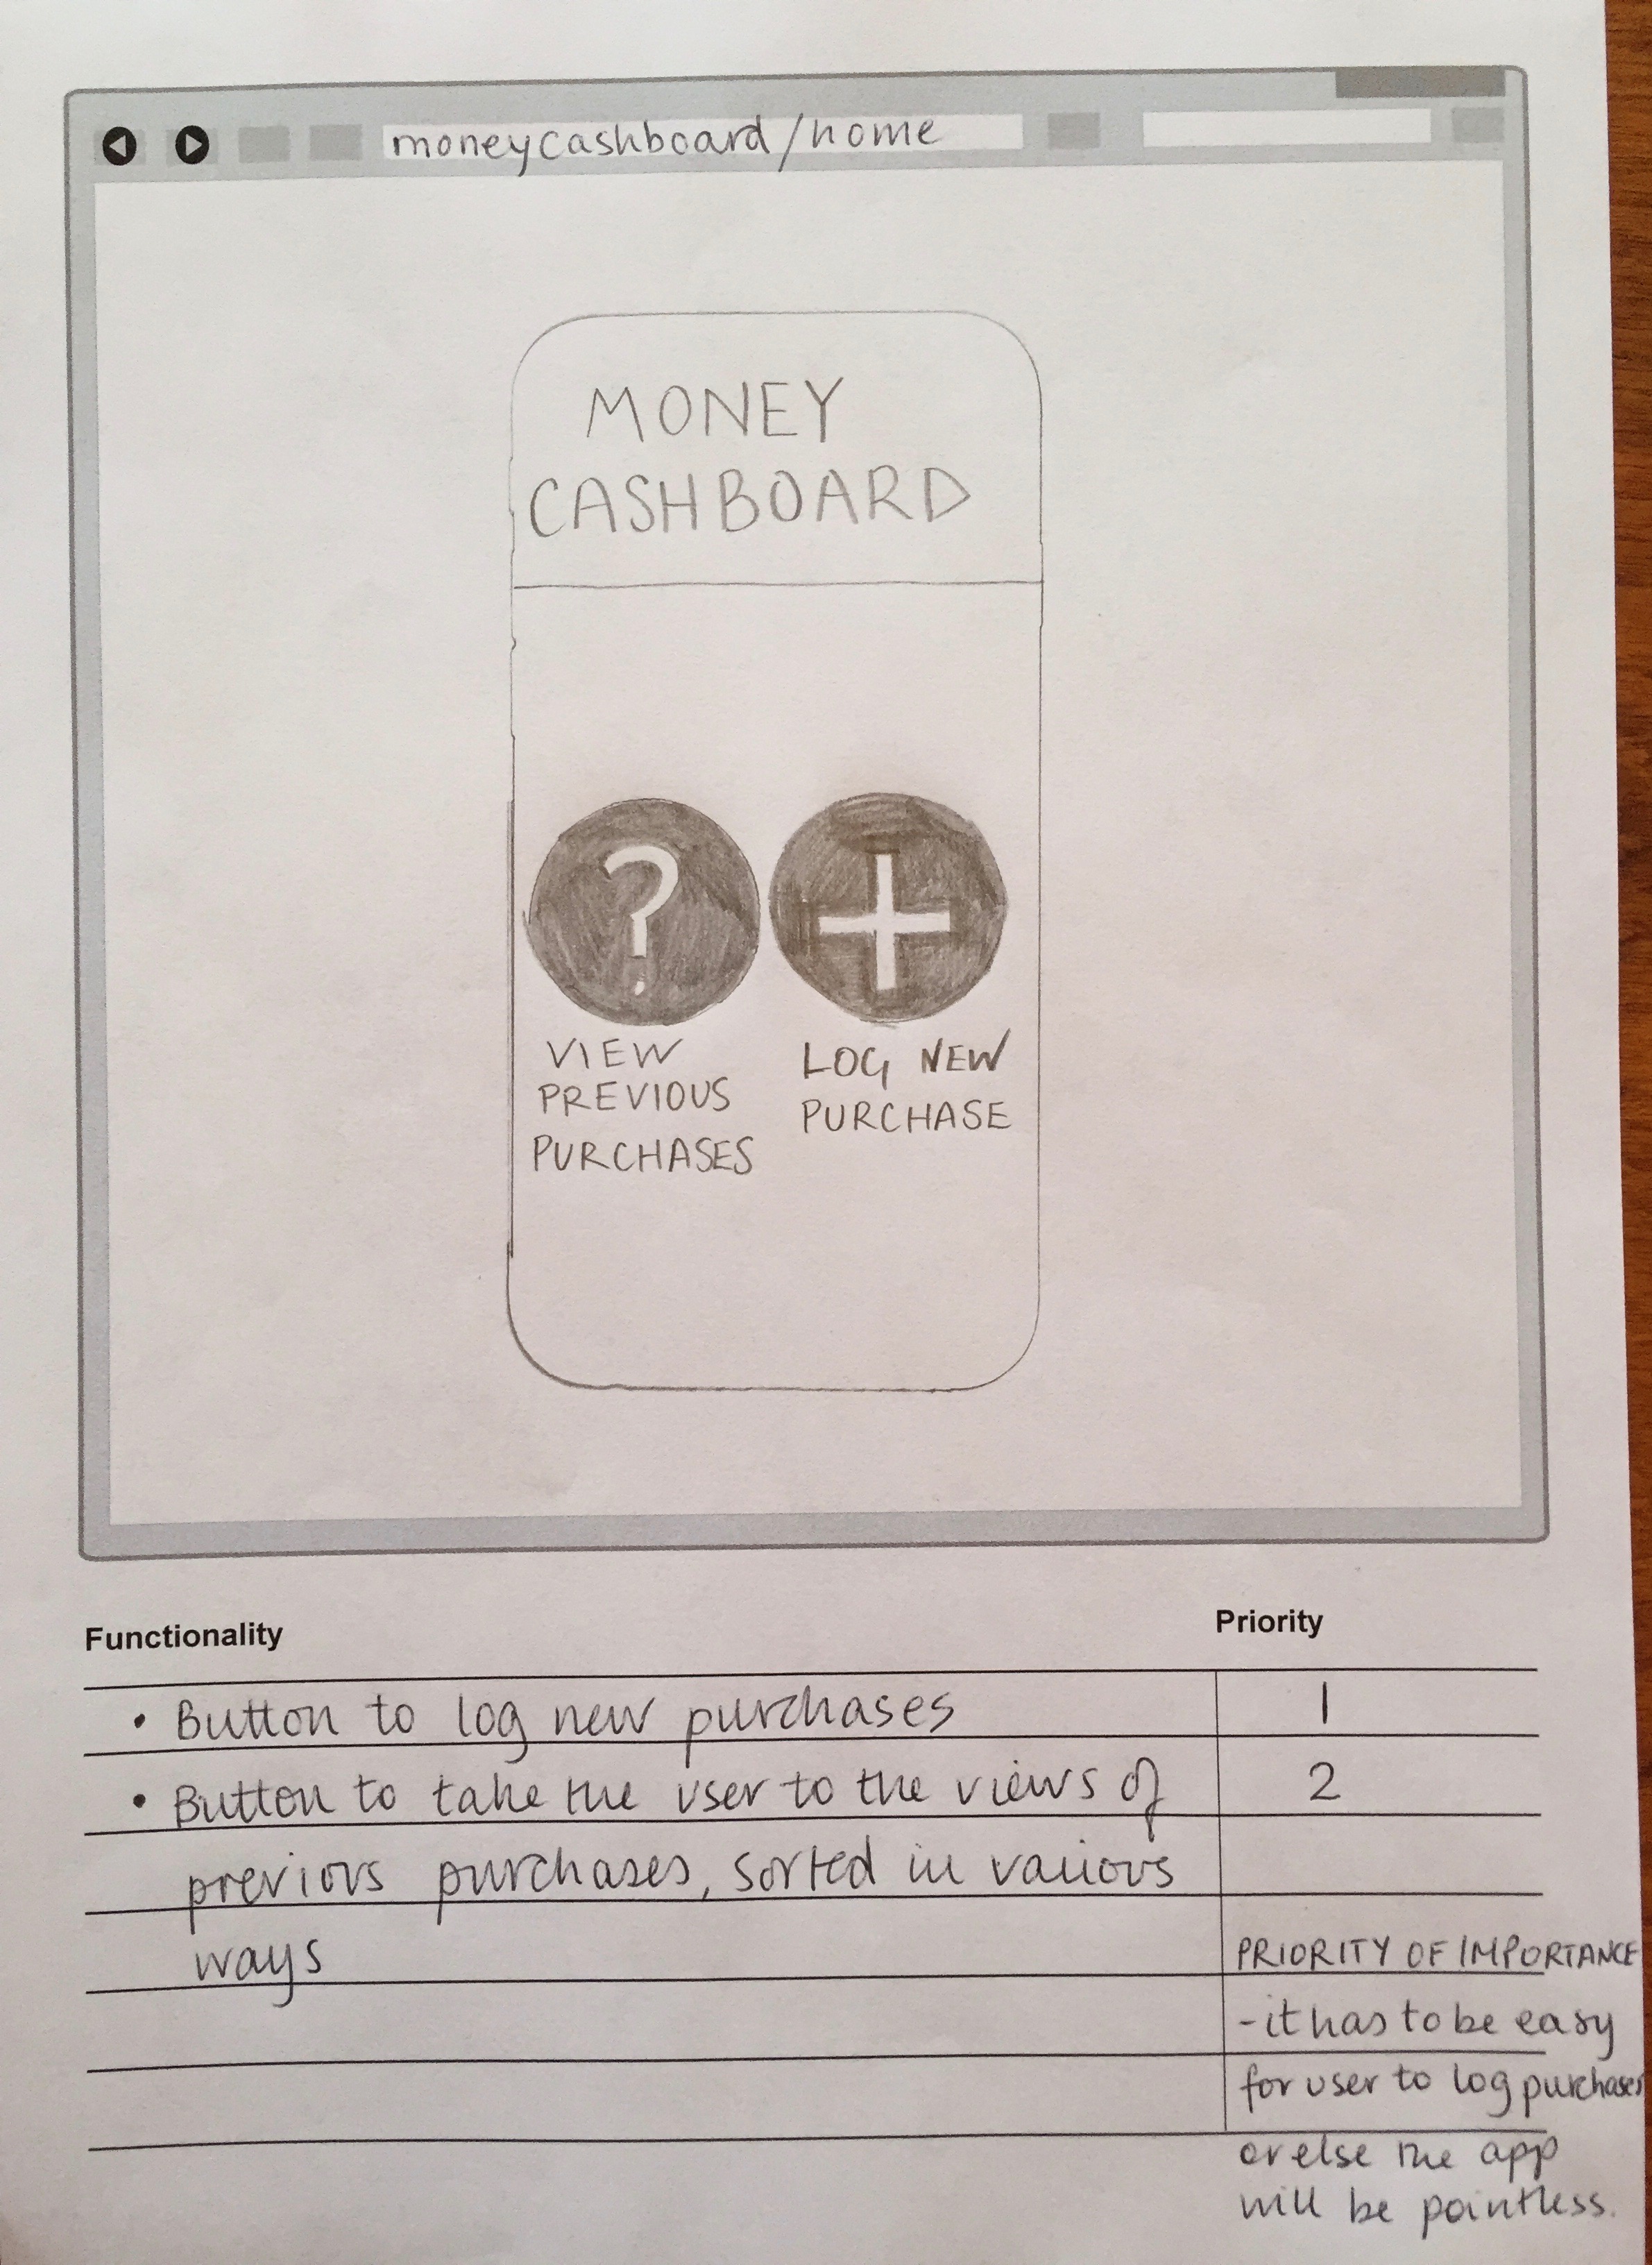 moneycashboard/home
MONEY
CASHBOARD
?
+
VIEW
PREVIOUS
PURCHASES
LOG NEW
PURCHASE
Functionality
Priority
• Button to log new purchases
1
• Button to take the user to the views of
2
previous purchases, sorted in various
ways
PRIORITY OF IMPORTANCE
- it has to be easy
for user to log purchases
or else the app
will be pointless.